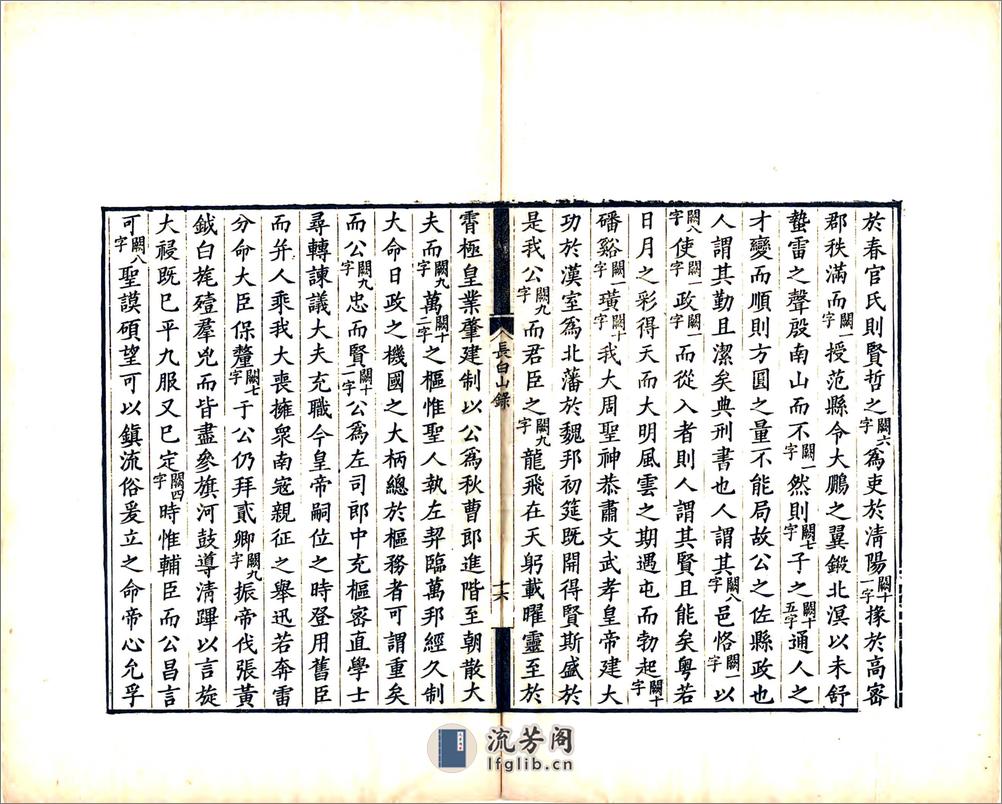 於春官氏則賢哲之闕六字為吏於清陽闕十一字掾於高密
郡秩滿而闕一字授范縣令大鵬之翼鍛北溟以未舒
蟄雷之聲殷南山而不闕一字然則闕七字子之闕十五字通人之
才變而順則方圓之量不能局故公之佐縣政也
人謂其勤且潔矣典刑書也人謂其闕八字邑恪闕一字以
闕八字使闕一字政闕一字而從入者則人謂其賢且能矣粵若
日月之彩得天而大明風雲之期遇屯而勃起闕十字
磻谿闕一字璜闕十字我大周聖神恭肅文武孝皇帝建大
功於漢室為北藩於魏邦初筵既開得賢斯盛於
是我公闕九字而君臣之闕九字龍飛在天躬載曜靈至於
長白山錄
十六
霄極皇業肇建制以公為秋曹郎進階至朝散大
夫而闕九字萬闕十二字之樞惟聖人執左契臨萬邦經久制
大命日政之機國之大柄總於樞務者可謂重矣
而公闕九字忠而賢闕十一字公為左司郎中充樞密直學士
尋轉諫議大夫充職今皇帝嗣位之時登用舊臣
而并人乘我大喪擁衆南寇親征之舉迅若奔雷
分命大臣保釐闕七字于公仍拜貳卿闕九字振帝伐張黃
鉞白旄殪羣兇而皆盡參旗河鼓導清蹕以言旋
大祲既已平九服又已定闕四字時惟輔臣而公昌言
可闕八字聖謨碩望可以鎮流俗爰立之命帝心允孚
流芳阁
lfglib.cn